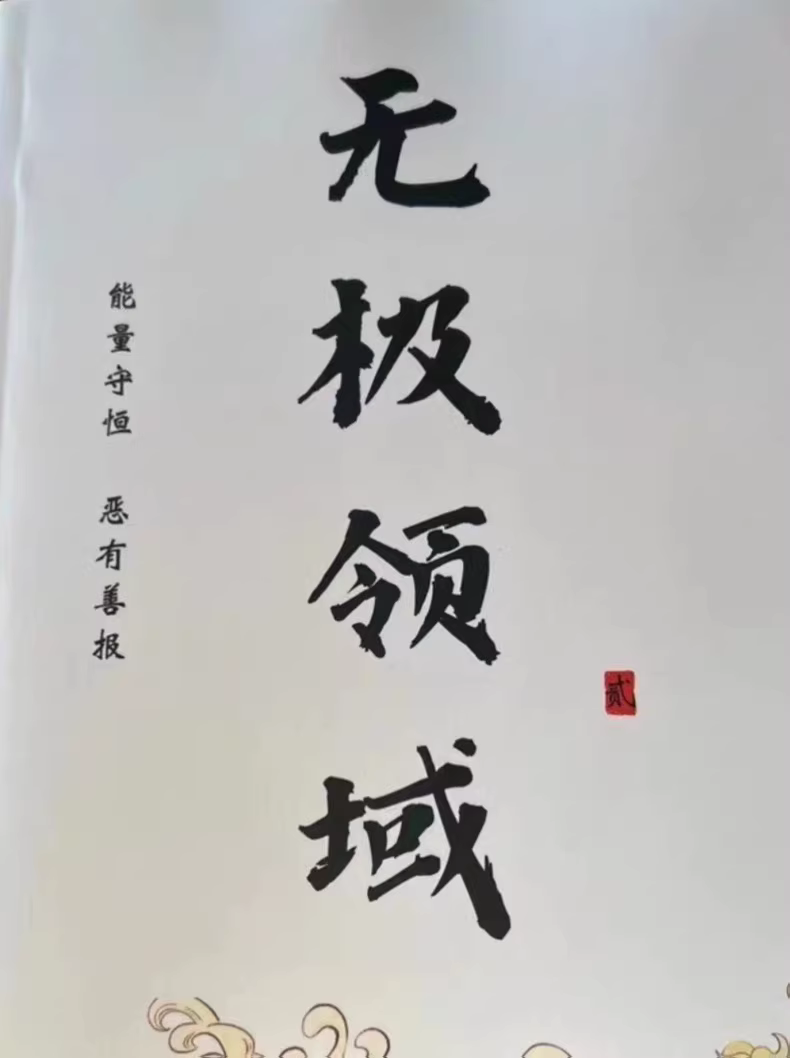 无极领域
贰
能量守恒 恶有善报